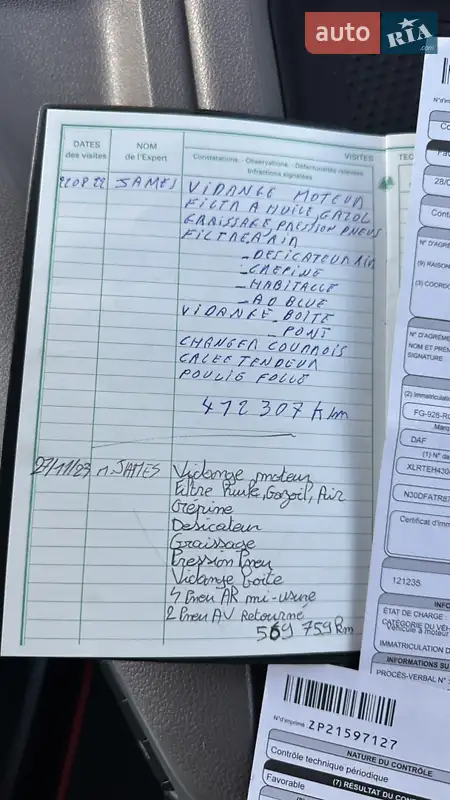 auto RIA .com
DATES des visites
NOM de l'Expert
VISITES
Constatations - Observations - Défectuosités relevées
Infractions signalées
TEC
22 08 22 JAMES VIDANGE MOTEUR
FILTRA A HUILE, GAZOL
GRAISSAGE, PRESSION PNEUS
FILTRE A AIR
- DESICATEUR AIR
- CREPINE
- HABITALLE
- AD BLUE
VIDANGE BOITE
PONT
CHANGER COURROIS
GALEE TENDEUR
POULIE FOLLE
412 307 Klm
27/11/23 n. JAMES Vidange moteur
Filtre Huile, Gazoil, Air
Crépine
Desicateur
Graissage
Pression Pneu
Vidange boite
4 Pneu AR mi-usure
2 Pneu AV Retourné
569 759 Km
N°d'im
Co
Fav
28/0
Cont
N° D'AGRÉ
(9) RAISON
(3) COORDO
N° D'AGRÉME
NOM ET PRÉN
SIGNATURE
(2) Immatriculatio
FG-928-R
Marq
DAF
(1) N° da
XLRTEH430
N30DFATR8
Certificat d'imm
121235
INFO
ÉTAT DE CHARGE :
CATÉGORIE DU VÉH
Véhicule à moteur
IMMATRICULATION D
INFORMATIONS SU
PROCÈS-VERBAL N° :
N°d'imprimé : ZP21597127
NATURE DU CONTRÔLE
Contrôle technique périodique
(7) RÉSULTAT DU CON
Favorable